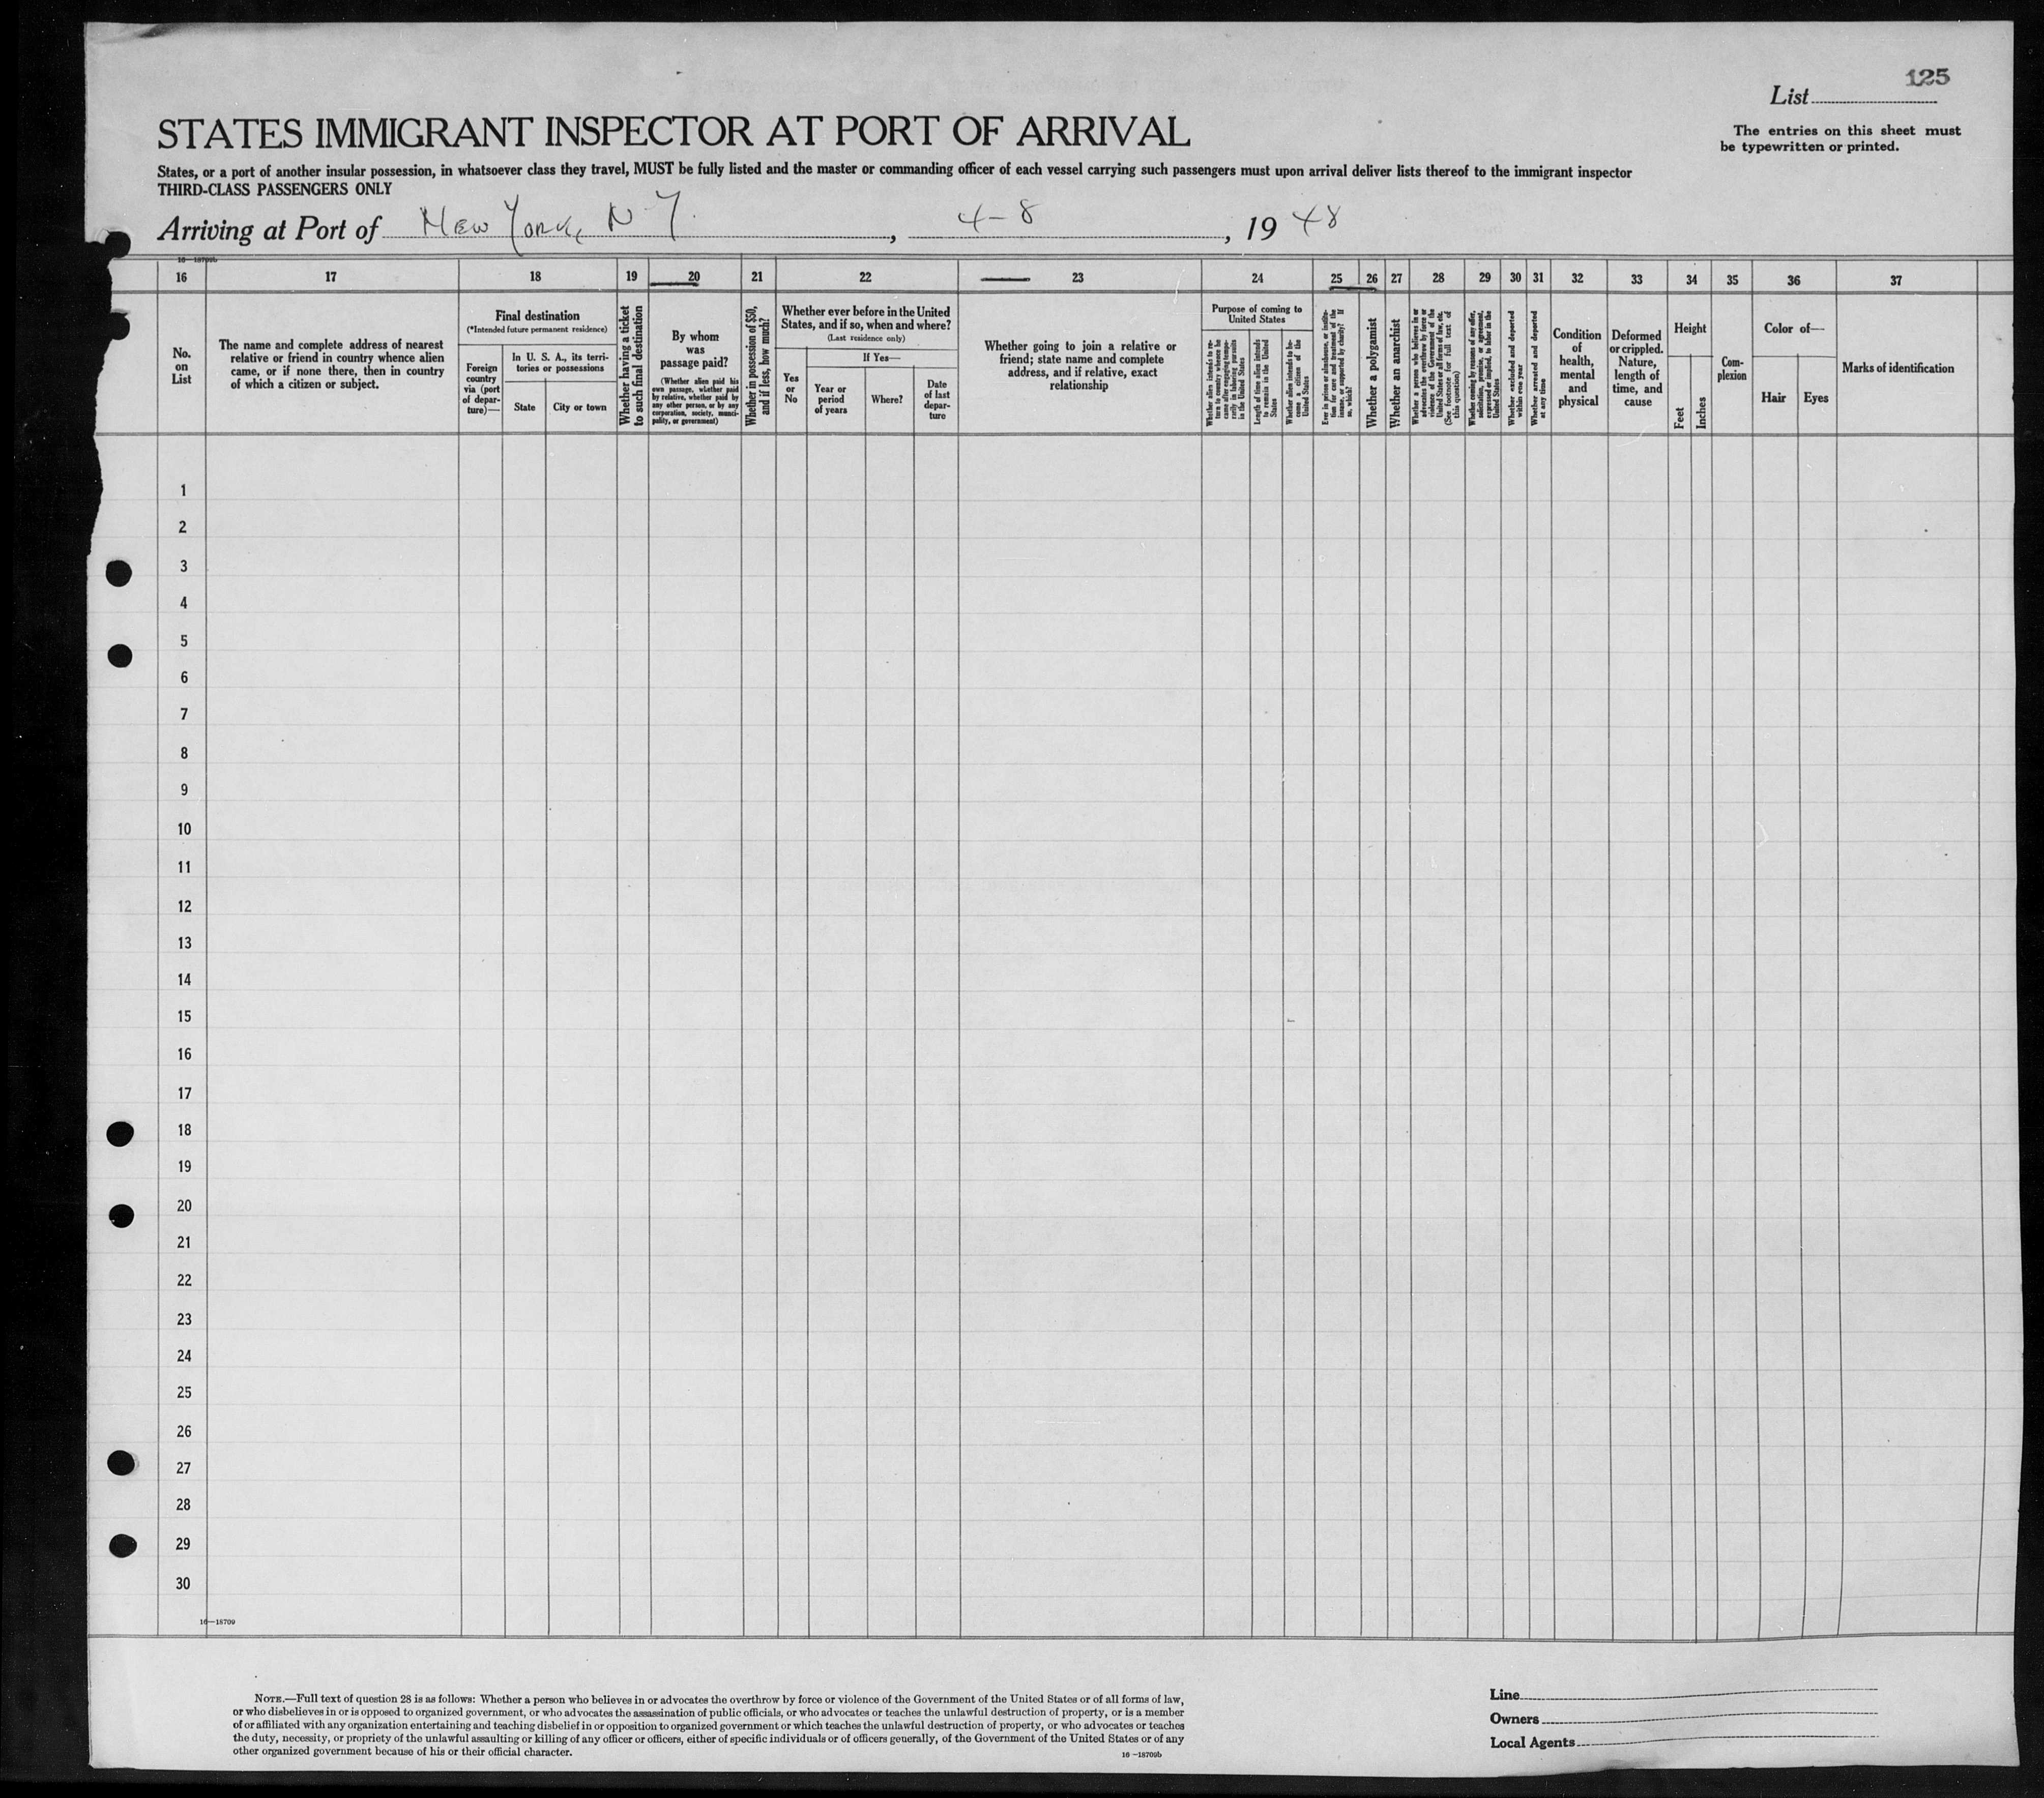 125
List
The entries on this sheet must
be typewritten or printed.
STATES IMMIGRANT INSPECTOR AT PORT OF ARRIVAL
States, or a port of another insular possession, in whatsoever class they travel, MUST be fully listed and the master or commanding officer of each vessel carrying such passengers must upon arrival deliver lists thereof to the immigrant inspector
THIRD-CLASS PASSENGERS ONLY
Arriving at Port of New York, N Y. , 4-8 , 19 48
16—18709b
16 17 18 19 20 21 22 23 24 25 26 27 28 29 30 31 32 33 34 35 36 37
No.
on
List
The name and complete address of nearest
relative or friend in country whence alien
came, or if none there, then in country
of which a citizen or subject.
Final destination
(*Intended future permanent residence)
Foreign
country
via (port
of depar-
ture)—
In U. S. A., its terri-
tories or possessions
State
City or town
Whether having a ticket
to such final destination
By whom
was
passage paid?
(Whether alien paid his
own passage, whether paid
by relative, whether paid by
any other person, or by any
corporation, society, munici-
pality, or government)
Whether in possession of $50,
and if less, how much?
Whether ever before in the United
States, and if so, when and where?
(Last residence only)
Yes
or
No
If Yes—
Year or
period
of years
Where?
Date
of last
depar-
ture
Whether going to join a relative or
friend; state name and complete
address, and if relative, exact
relationship
Purpose of coming to
United States
Whether alien intends to re-
turn to country whence he
came after engaging tempo-
rarily in laboring pursuits
in the United States
Length of time alien intends
to remain in the United
States
Whether alien intends to be-
come a citizen of the
United States
Ever in prison or almshouse, or institu-
tion for care and treatment of the
insane, or supported by charity? If
so, which?
Whether a polygamist
Whether an anarchist
Whether a person who believes in or
advocates the overthrow by force or
violence of the Government of the
United States or all forms of law, etc.
(See footnote for full text of
this question)
Whether coming by reasons of any offer,
solicitation, promise, or agreement,
expressed or implied, to labor in the
United States
Whether excluded and deported
within one year
Whether arrested and deported
at any time
Condition
of
health,
mental
and
physical
Deformed
or crippled.
Nature,
length of
time, and
cause
Height
Feet
Inches
Com-
plexion
Color of—
Hair
Eyes
Marks of identification
1
2
3
4
5
6
7
8
9
10
11
12
13
14
15
16
17
18
19
20
21
22
23
24
25
26
27
28
29
30
16—18709
NOTE.—Full text of question 28 is as follows: Whether a person who believes in or advocates the overthrow by force or violence of the Government of the United States or of all forms of law,
or who disbelieves in or is opposed to organized government, or who advocates the assassination of public officials, or who advocates or teaches the unlawful destruction of property, or is a member
of or affiliated with any organization entertaining and teaching disbelief in or opposition to organized government or which teaches the unlawful destruction of property, or who advocates or teaches
the duty, necessity, or propriety of the unlawful assaulting or killing of any officer or officers, either of specific individuals or of officers generally, of the Government of the United States or of any
other organized government because of his or their official character.
16—18709b
Line
Owners
Local Agents